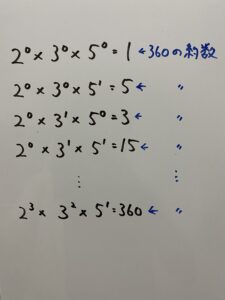 2⁰ × 3⁰ × 5⁰ = 1 ← 360の約数
2⁰ × 3⁰ × 5¹ = 5 ← 〃
2⁰ × 3¹ × 5⁰ = 3 ← 〃
2⁰ × 3¹ × 5¹ = 15 ← 〃
⋮ ⋮
2³ × 3² × 5¹ = 360 ← 〃